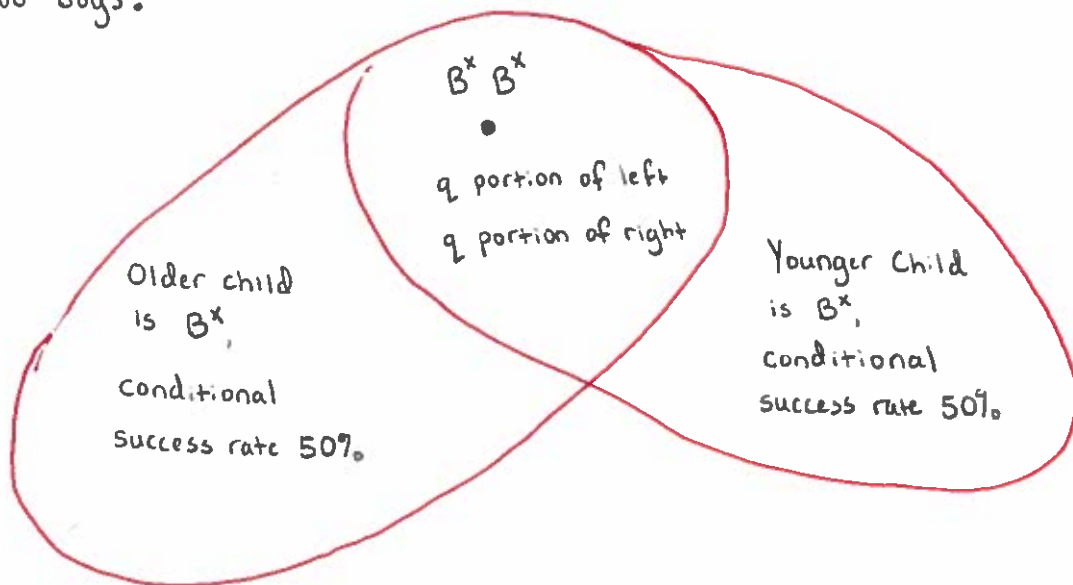 boys.
B^x B^x
q portion of left
q portion of right
Older child
is B^x,
conditional
success rate 50%
Younger Child
is B^x,
conditional
success rate 50%